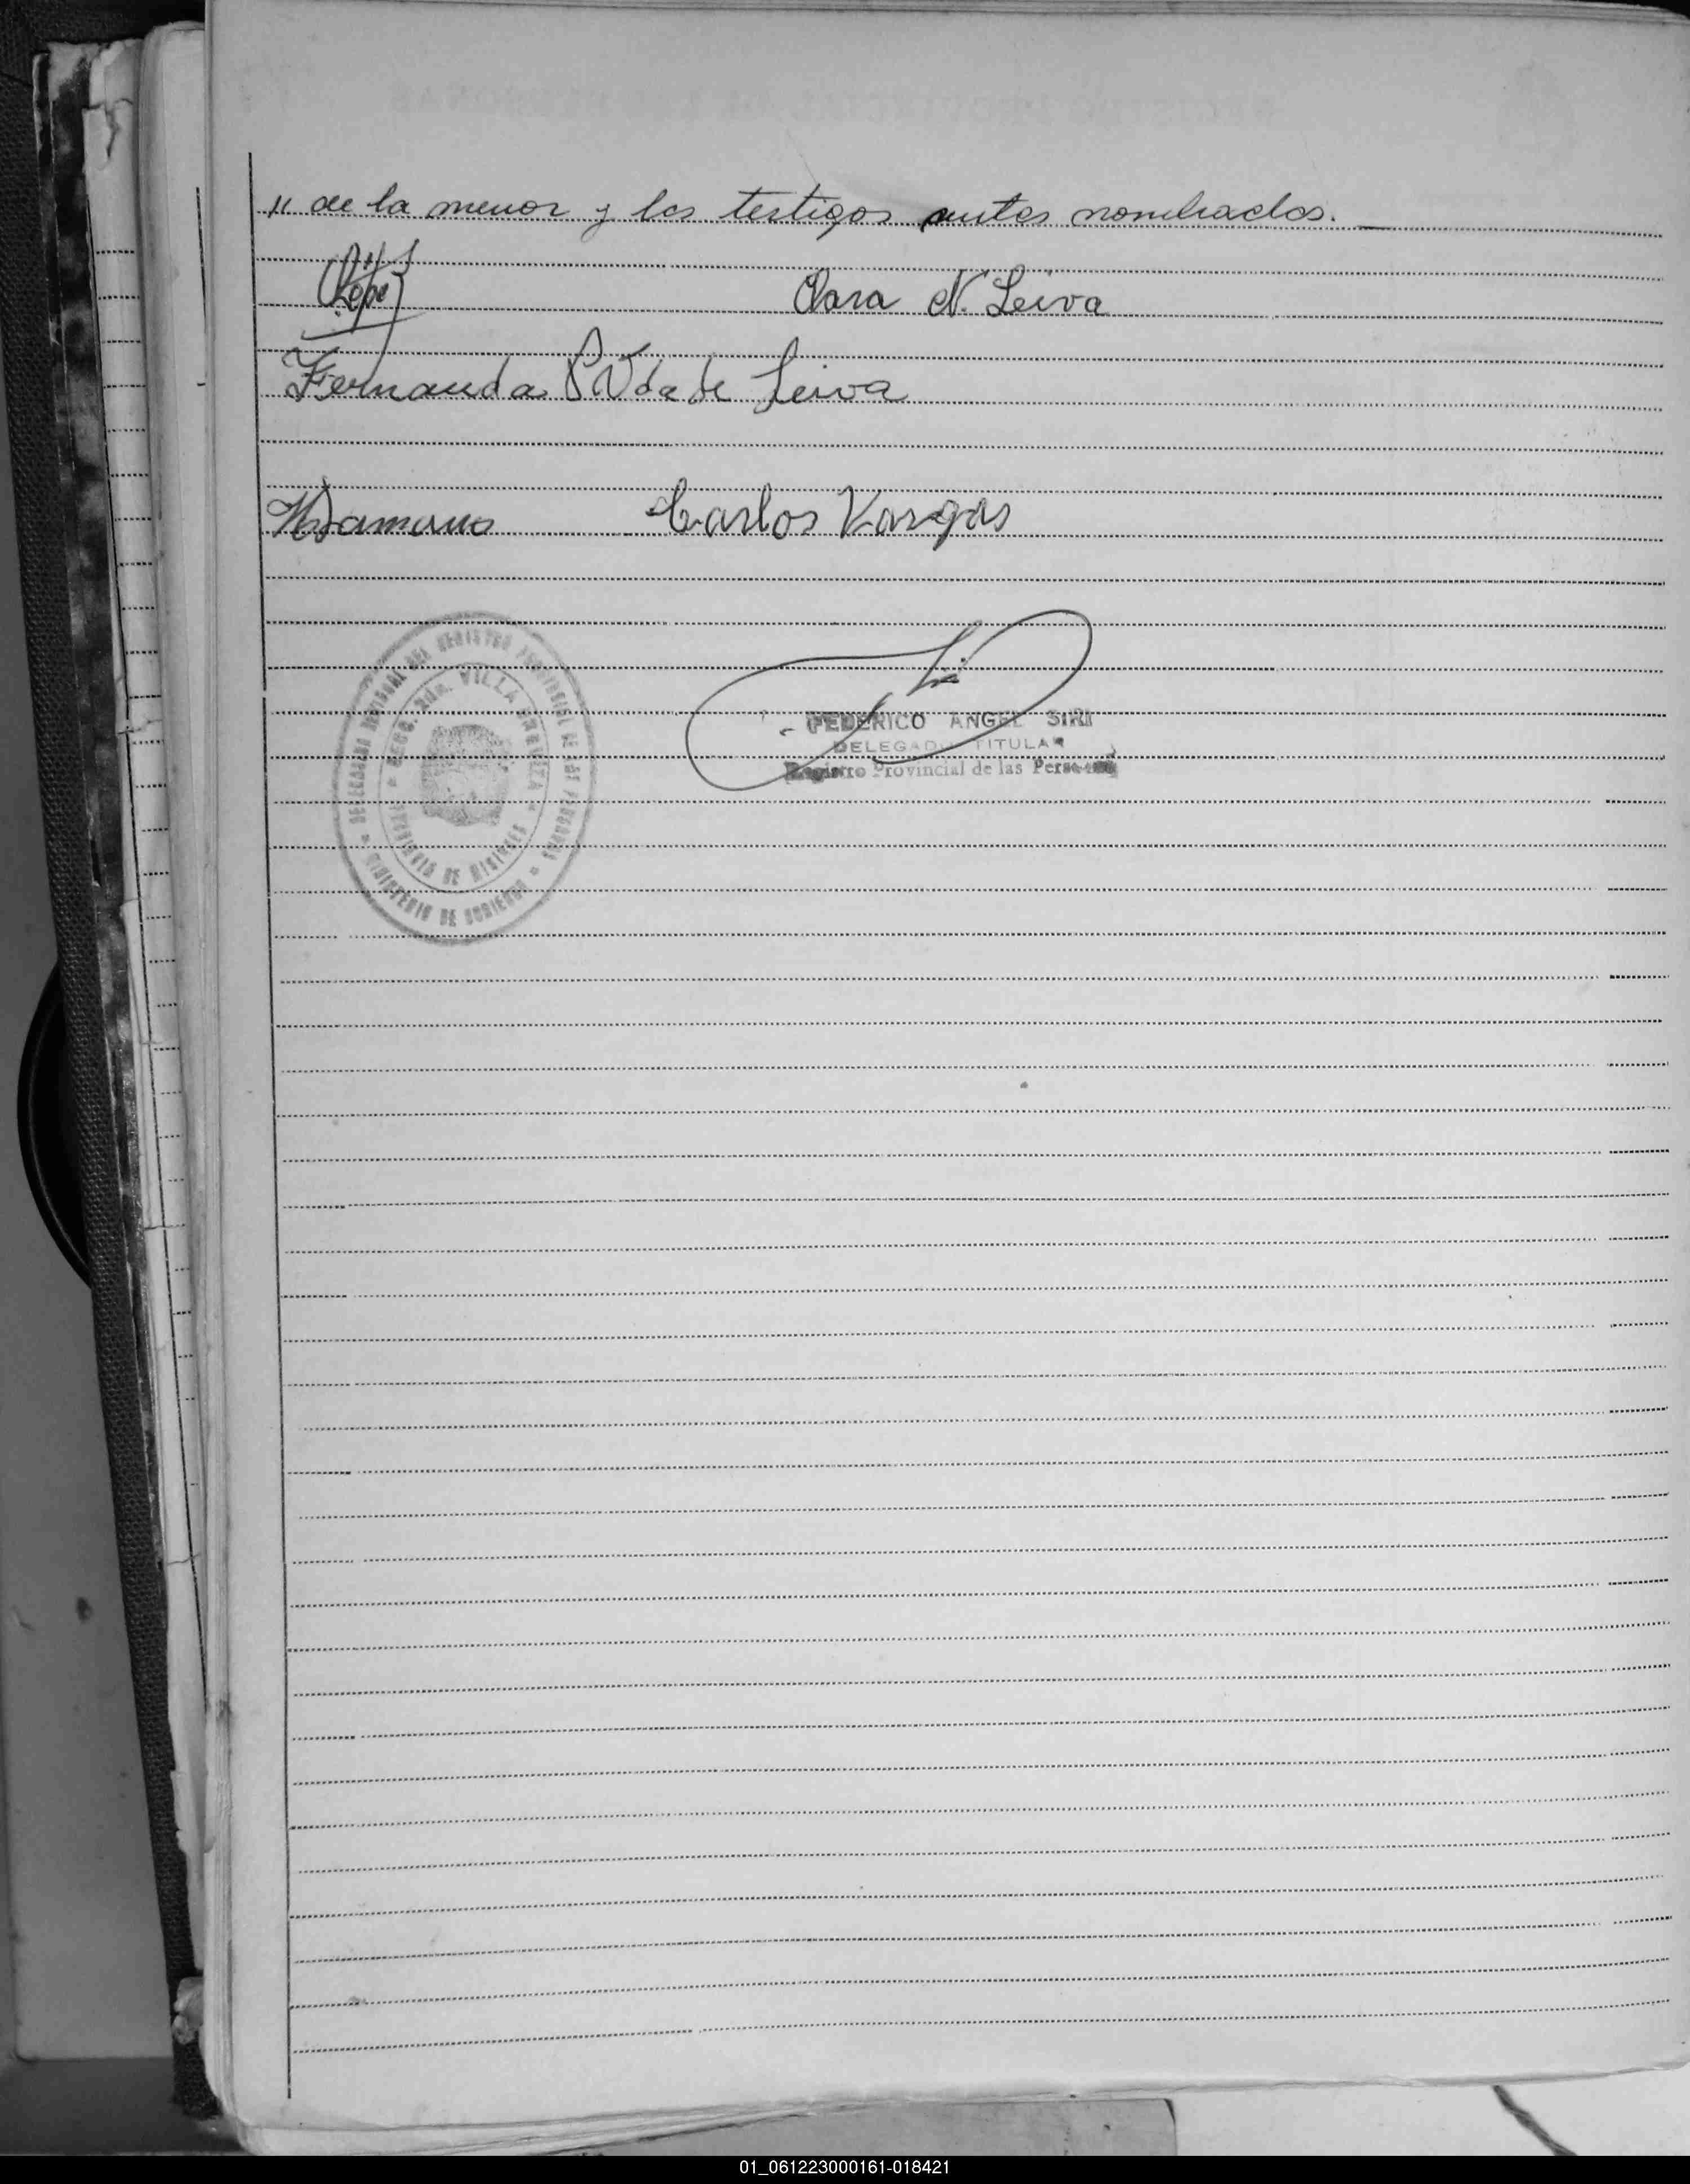 " de la menor y los testigos antes nombrados.
López
Clara N. Leiva
Fernanda P. Vda de Leiva
Carlos Vargas
DELEGADO SECCIONAL DEL REGISTRO PROVINCIAL DE LAS PERSONAS
SECC. 2da. VILLA
MINISTERIO DE GOBIERNO
FEDERICO ANGEL SIRI
DELEGADO TITULAR
Registro Provincial de las Personas
01_061223000161-018421